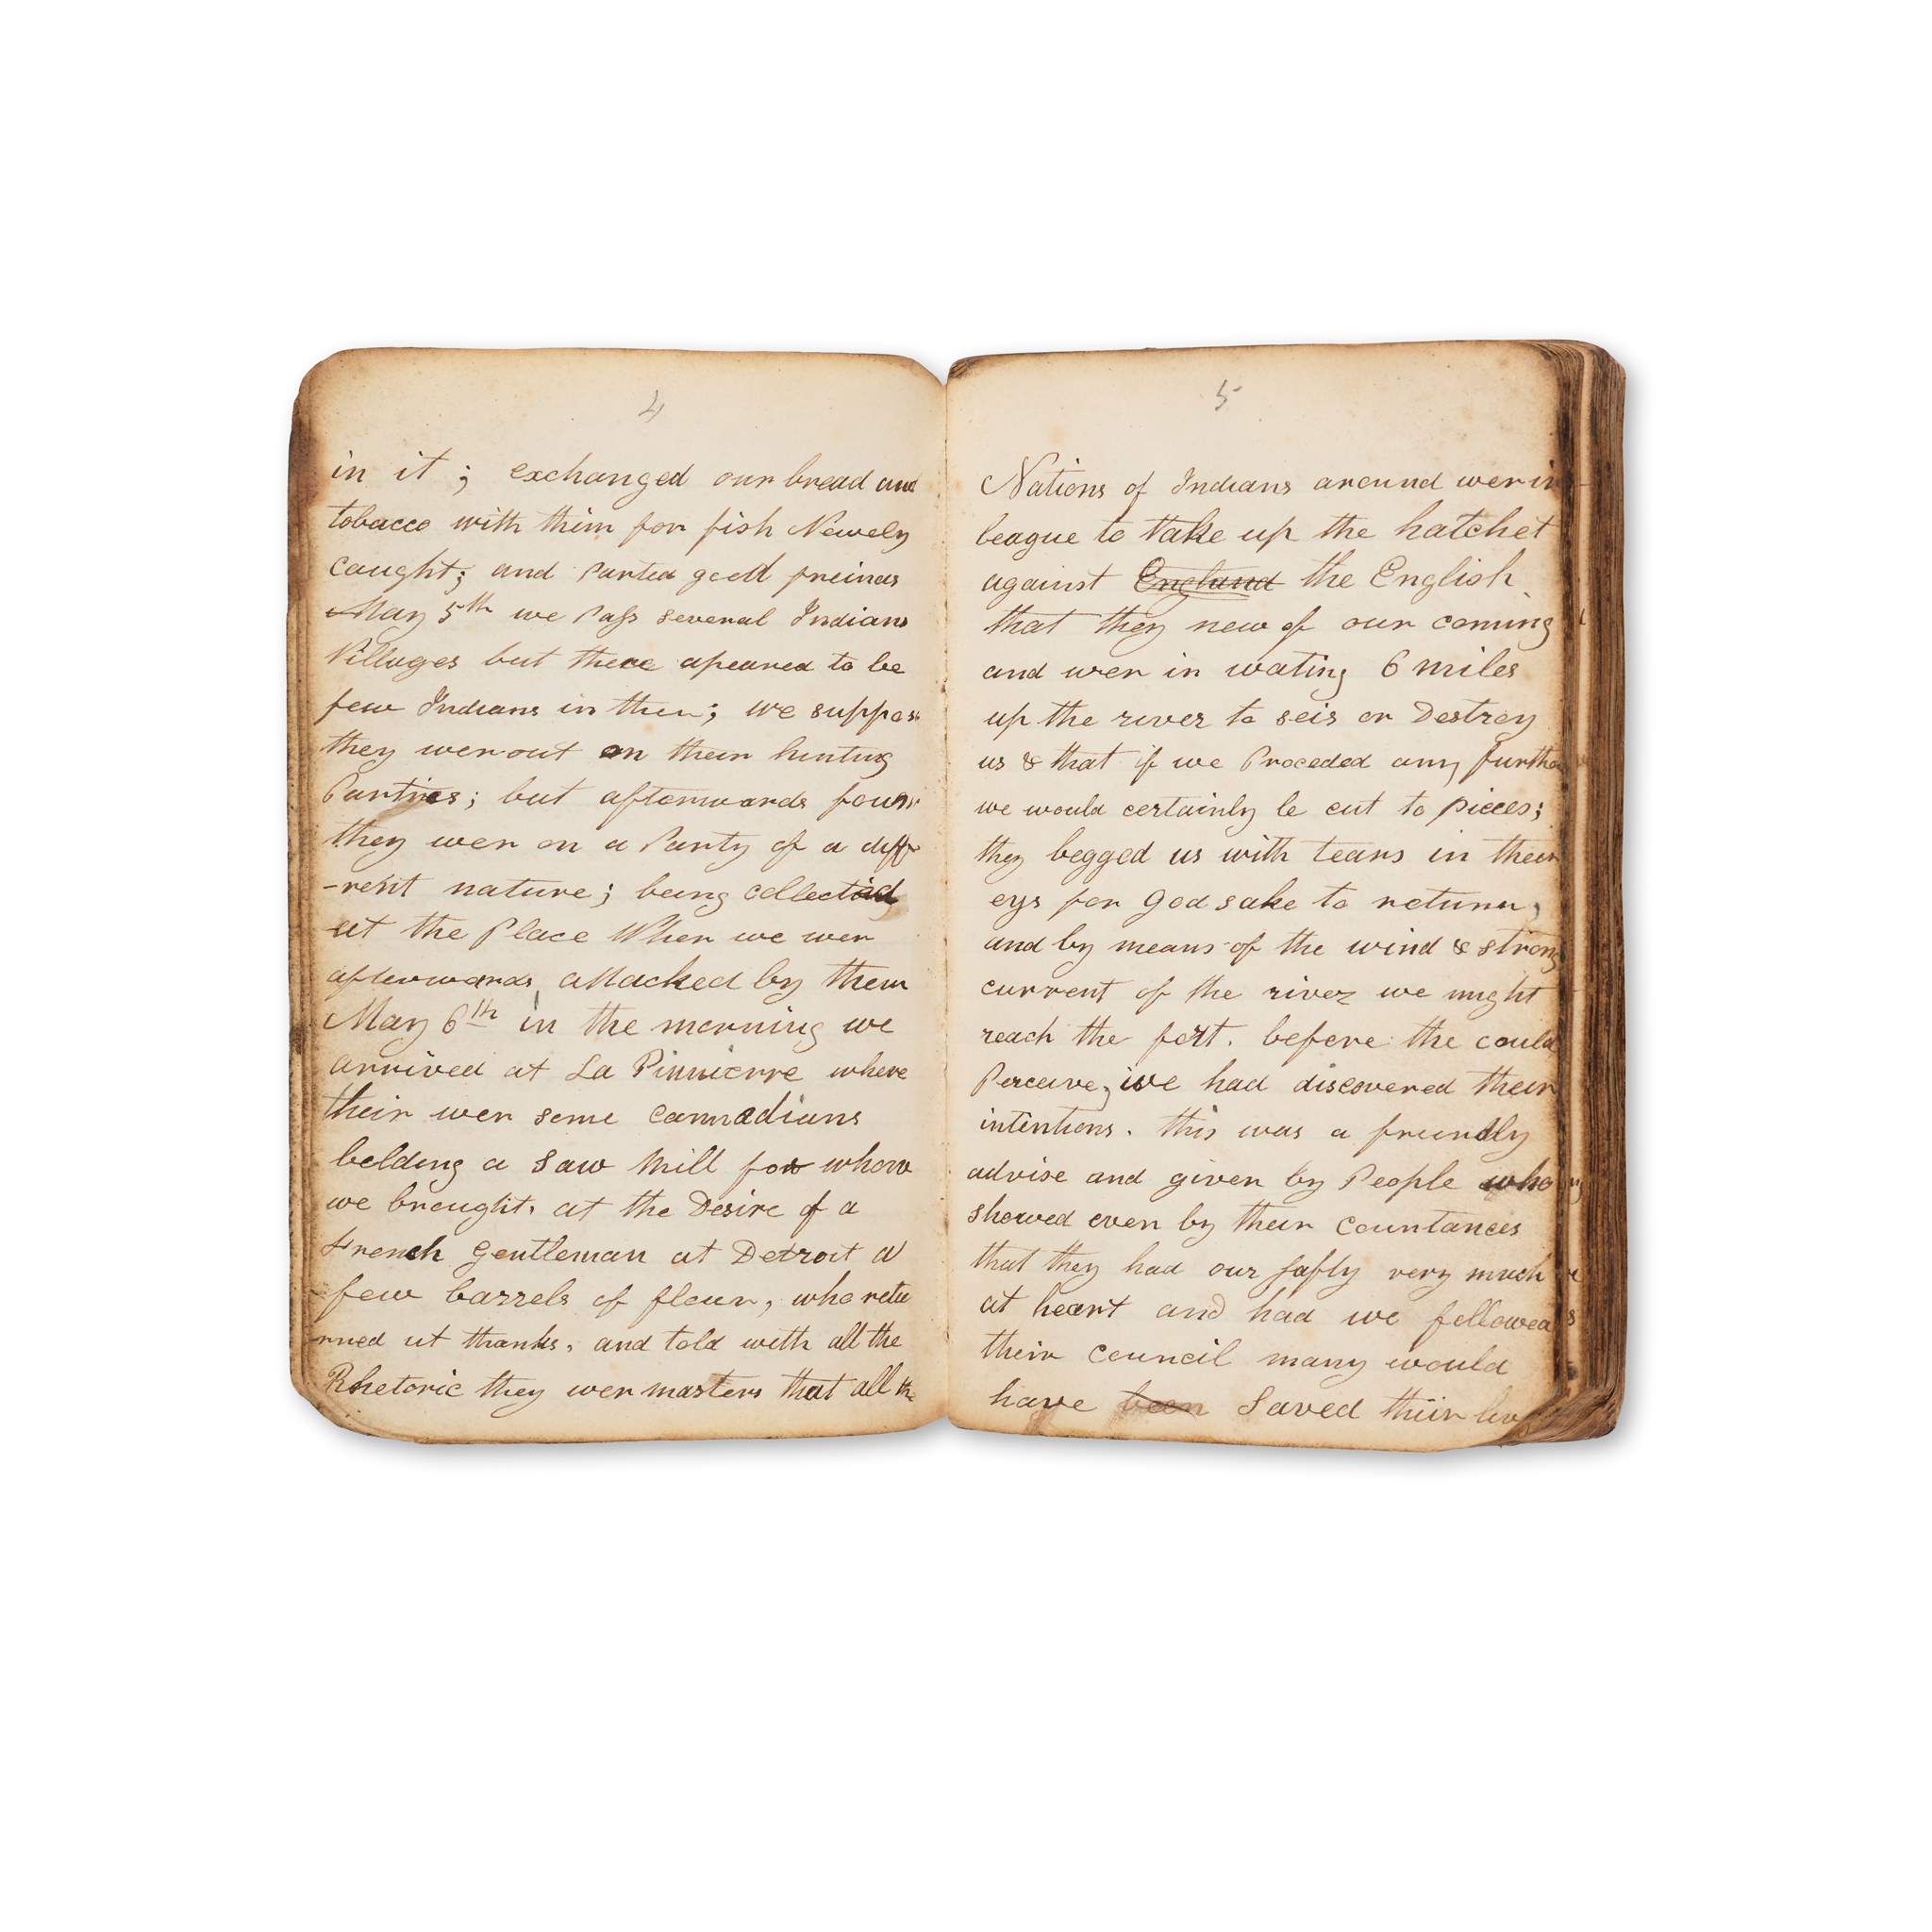 4
in it ; exchanged our bread and
tobacco with thim for fish Newely
caught; and Parted good freinds
May 5th we Pass several Indians
Villages but there apeared to be
few Indians in them; we suppos
they wer out on their hunting
Parties; but afterwards foun
they wer on a Party of a diff
-rent nature; being collected
at the Place Wher we wer
afterwards attacked by them
May 6th in the morning we
arrived at La Pinnierre where
their wer some cannadians
belding a Saw Mill for whom
we brought, at the Desire of a
French Gentleman at Detroit a
few barrels of flour, who retu
rned ut thanks, and told with all the
Rhetoric they wer masters that all the
5
Nations of Indians around wer in
league to take up the hatchet
against England the English
that they new of our coming
and wer in wating 6 miles
up the river to seis or Destroy
us & that if we Proceded any further
we would certainly be cut to pieces;
they begged us with tears in their
eys for God sake to return,
and by means of the wind & strong
current of the river we might
reach the fort. before the could
Perceive, we had discovered their
intintions. this was a freindly
advise and given by People who
showed even by their countances
that they had our safty very much
at heart and had we followed
their council many would
have been Saved their